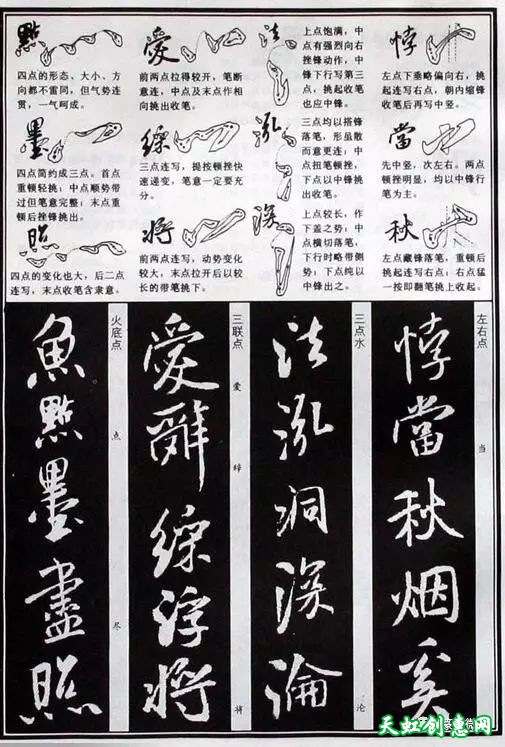 點
四点的形态、大小、方
向都不雷同，但气势连
贯，一气呵成。
墨
四点简约成三点。首点
重顿轻挑；中点顺势带
过但笔意完整；末点重
顿后挫锋挑出。
照
四点的变化也大，后二点
连写，末点收笔含隶意。
爱
前两点拉得较开，笔断
意连，中点及末点作相
向挑出收笔。
繰
三点连写，提按顿挫快
速递变，笔意一定要充
分。
将
前两点连写，动势变化
较大，末点拉开后以较
长的带笔挑下。
法
上点饱满，中
点有强烈向右
挫锋动作，中
锋下行写第三
点，挑起收笔
也应中锋。
泓
三点均以搭锋
落笔，形虽散
而意更连；中
点扭笔顿挫，
下点以中锋挑
出收笔。
深
上点较长，作
下盖之势；中
点横切落笔，
下行时略带侧
势；下点纯以
中锋出之。
悖
左点下垂略偏向右，挑
起连写右点，朝内缩锋
收笔后再写中竖。
當
先中竖，次左右，两点
顿挫明显，均以中锋行
笔为主。
秋
左点藏锋落笔，重顿后
挑起连写右点；右点猛
一按即翻笔挑上收起。
左右点
当
悖當秋烟奚
三点水
沦
法泓洞深淪
三联点
爱
辞
将
愛辭繰浮将
火底点
点
尽
魚點墨盡照
天虹创意网